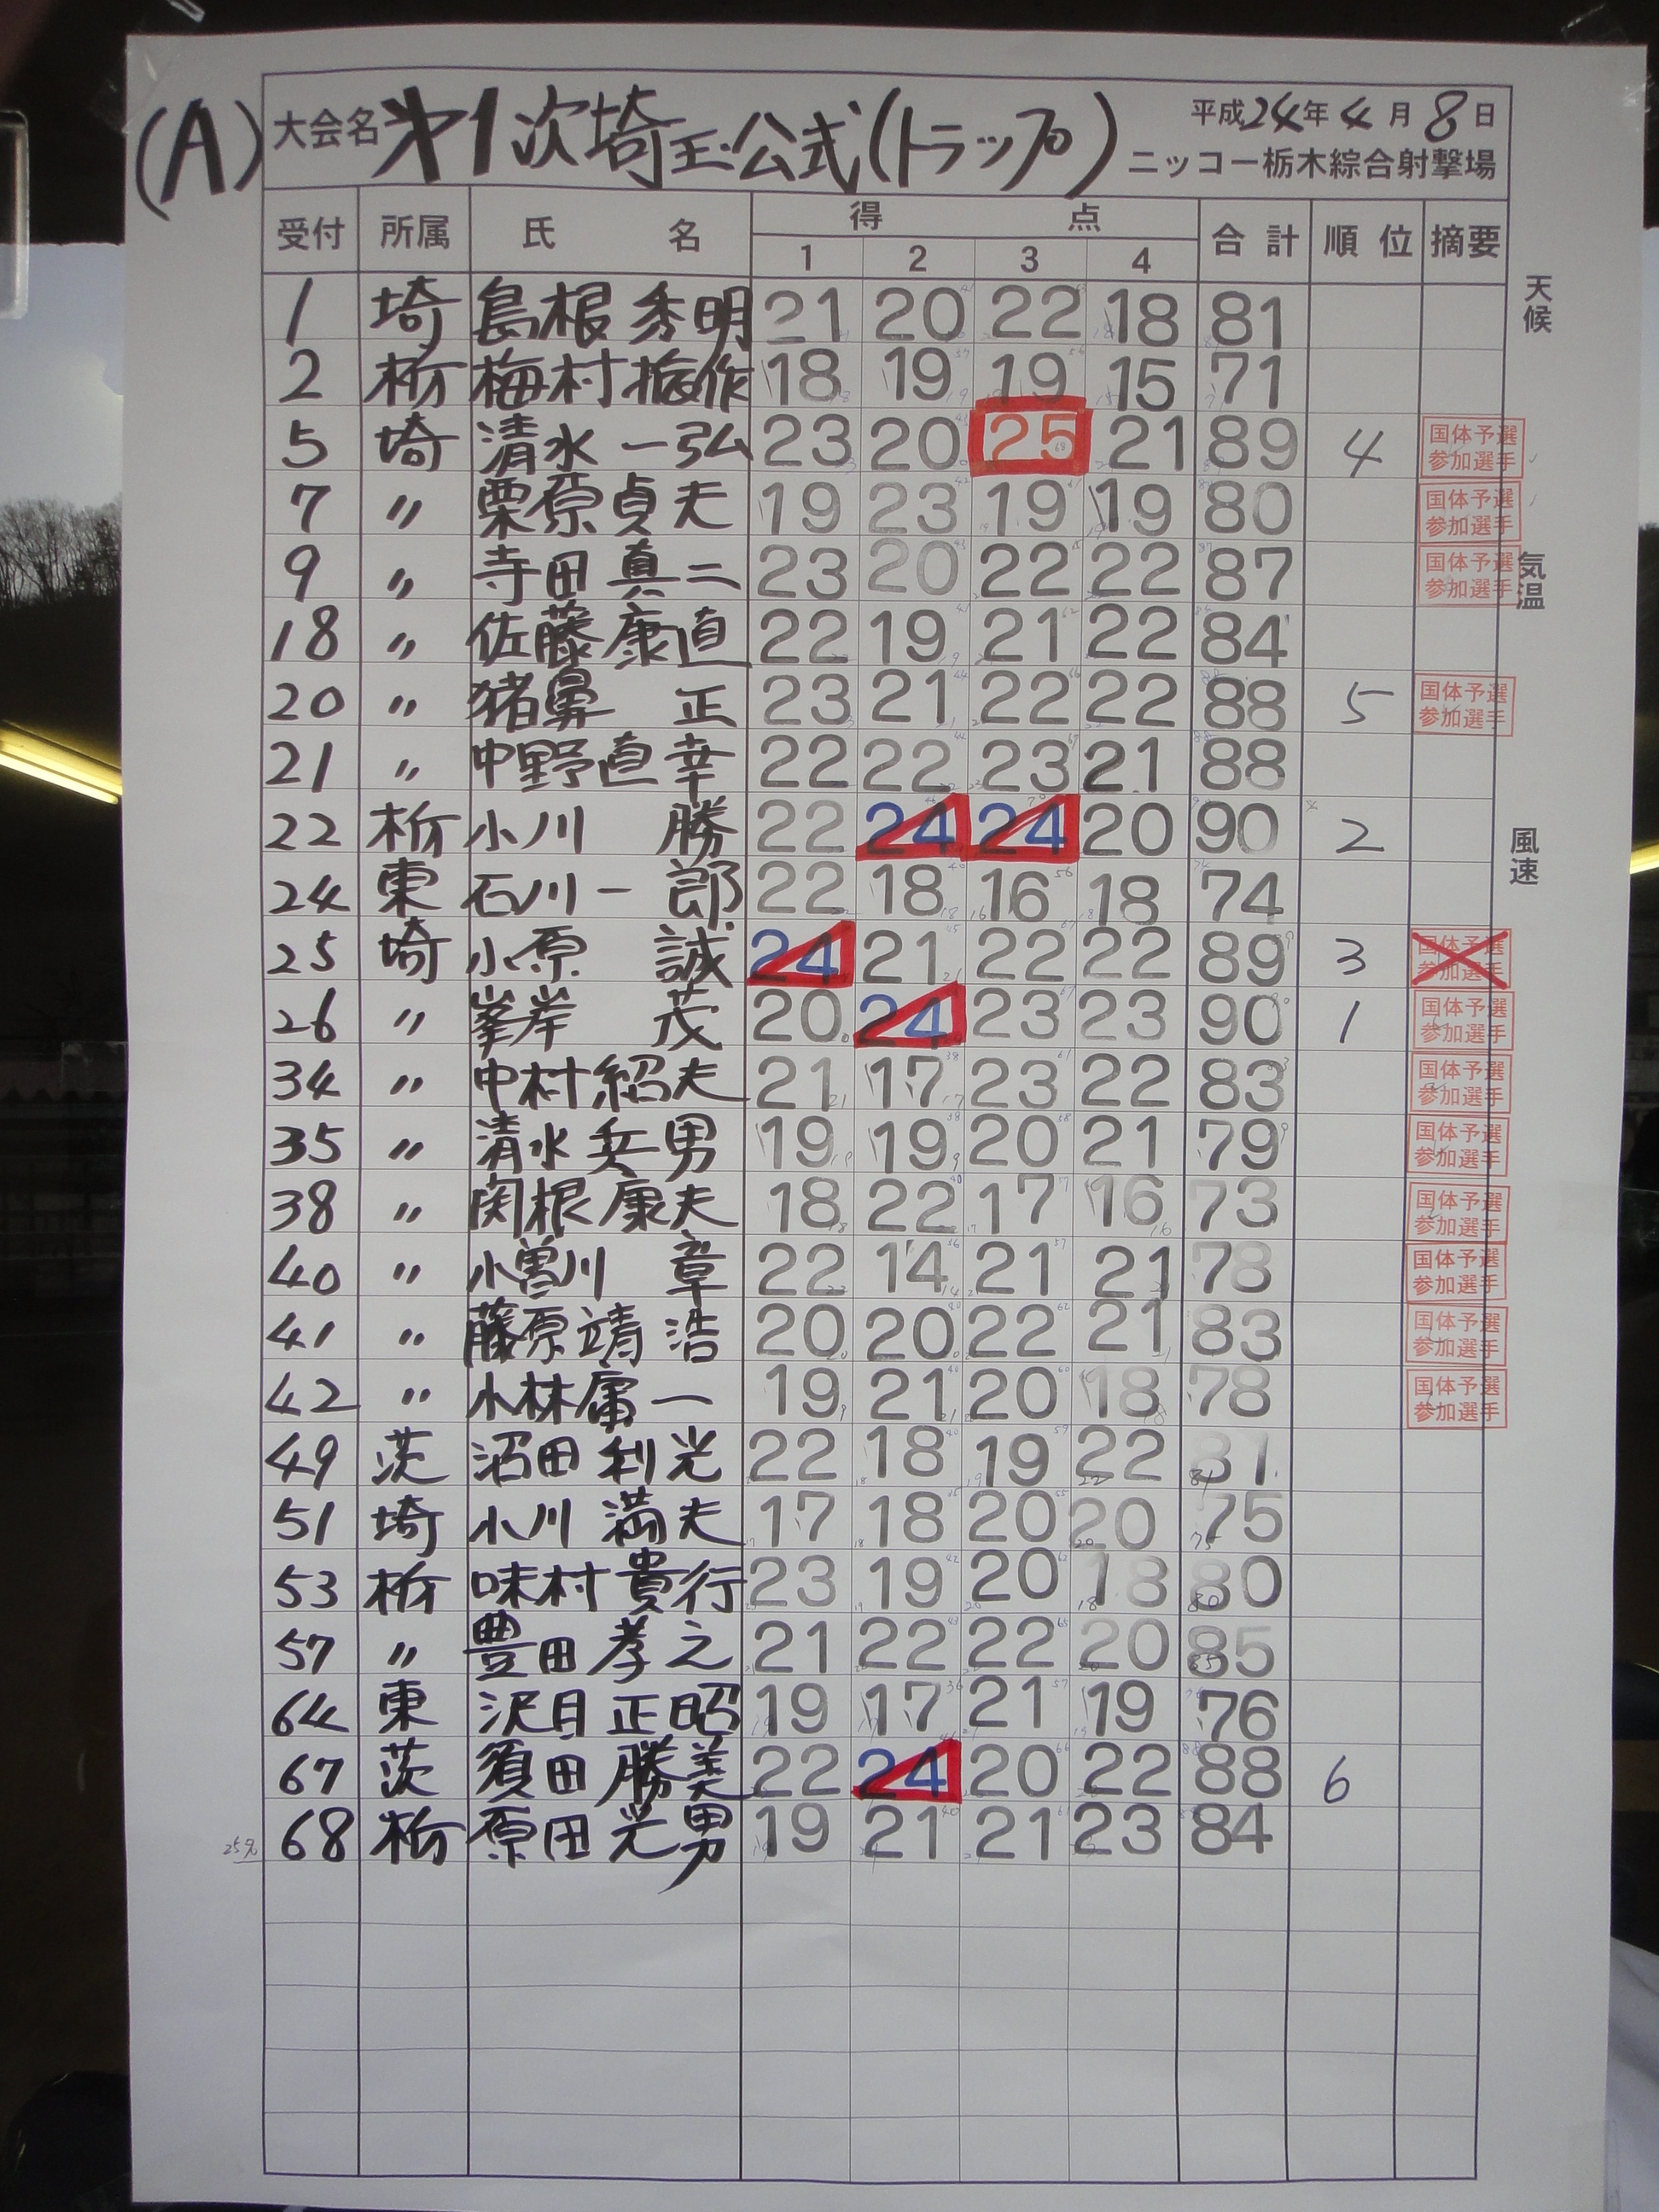 (A) 大会名 第1次埼玉公式(トラップ) 平成24年4月8日
ニッコー栃木綜合射撃場
受付 所属 氏名 得点 合計 順位 摘要
1 2 3 4
天候
1 埼 島根秀明 21 20 22 18 81
2 栃 梅村梅作 18 19 19 15 71
5 埼 清水一弘 23 20 25 21 89 4 国体予選参加選手
7 〃 栗原貞夫 19 23 19 19 80 国体予選参加選手
9 〃 寺田真二 23 20 22 22 87 国体予選参加選手
気温
18 〃 佐藤康直 22 19 21 22 84
20 〃 猪鼻 正 23 21 22 22 88 5 国体予選参加選手
21 〃 中野直幸 22 22 23 21 88
22 栃 小川 勝 22 24 24 20 90 2
風速
24 東 石川一郎 22 18 16 18 74
25 埼 小原 誠 24 21 22 22 89 3 国体予選参加選手
26 〃 峯岸 茂 20 24 23 23 90 1 国体予選参加選手
34 〃 中村紹夫 21 17 23 22 83 国体予選参加選手
35 〃 清水兵男 19 19 20 21 79 国体予選参加選手
38 〃 関根康夫 18 22 17 16 73 国体予選参加選手
40 〃 小曽川 章 22 14 21 21 78 国体予選参加選手
41 〃 藤原靖浩 20 20 22 21 83 国体予選参加選手
42 〃 小林庸一 19 21 20 18 78 国体予選参加選手
49 茨 沼田利光 22 18 19 22 81
51 埼 小川満夫 17 18 20 20 75
53 栃 味村貴行 23 19 20 18 80
57 〃 豊田孝之 21 22 22 20 85
64 東 沢目正昭 19 17 21 19 76
67 茨 須田勝美 22 24 20 22 88 6
68 栃 原田光男 19 21 21 23 84